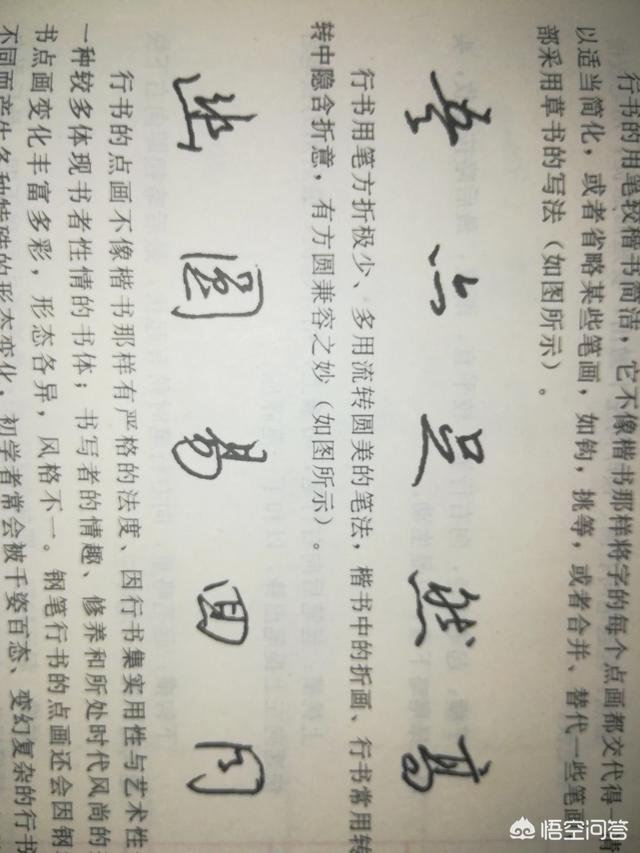 行书的用笔较楷书简洁，它不像楷书那样将字的每个点画都交代得一
以适当简化，或者省略某些笔画，如钩，挑等，或者合并、替代一些笔画
部采用草书的写法（如图所示）。
足 然 高
行书用笔方折极少、多用流转圆美的笔法，楷书中的折画、行书常用转
转中隐含折意，有方圆兼容之妙（如图所示）。
圆 易 回
行书的点画不像楷书那样有严格的法度、因行书集实用性与艺术性
一种较多体现书者性情的书体；书写者的情趣、修养和所处时代风尚的
书点画变化丰富多彩，形态各异，风格不一。钢笔行书的点画还会因钢
不同而产生各种特殊的形态变化，初学者常会被千姿百态、变幻复杂的行书
悟空问答